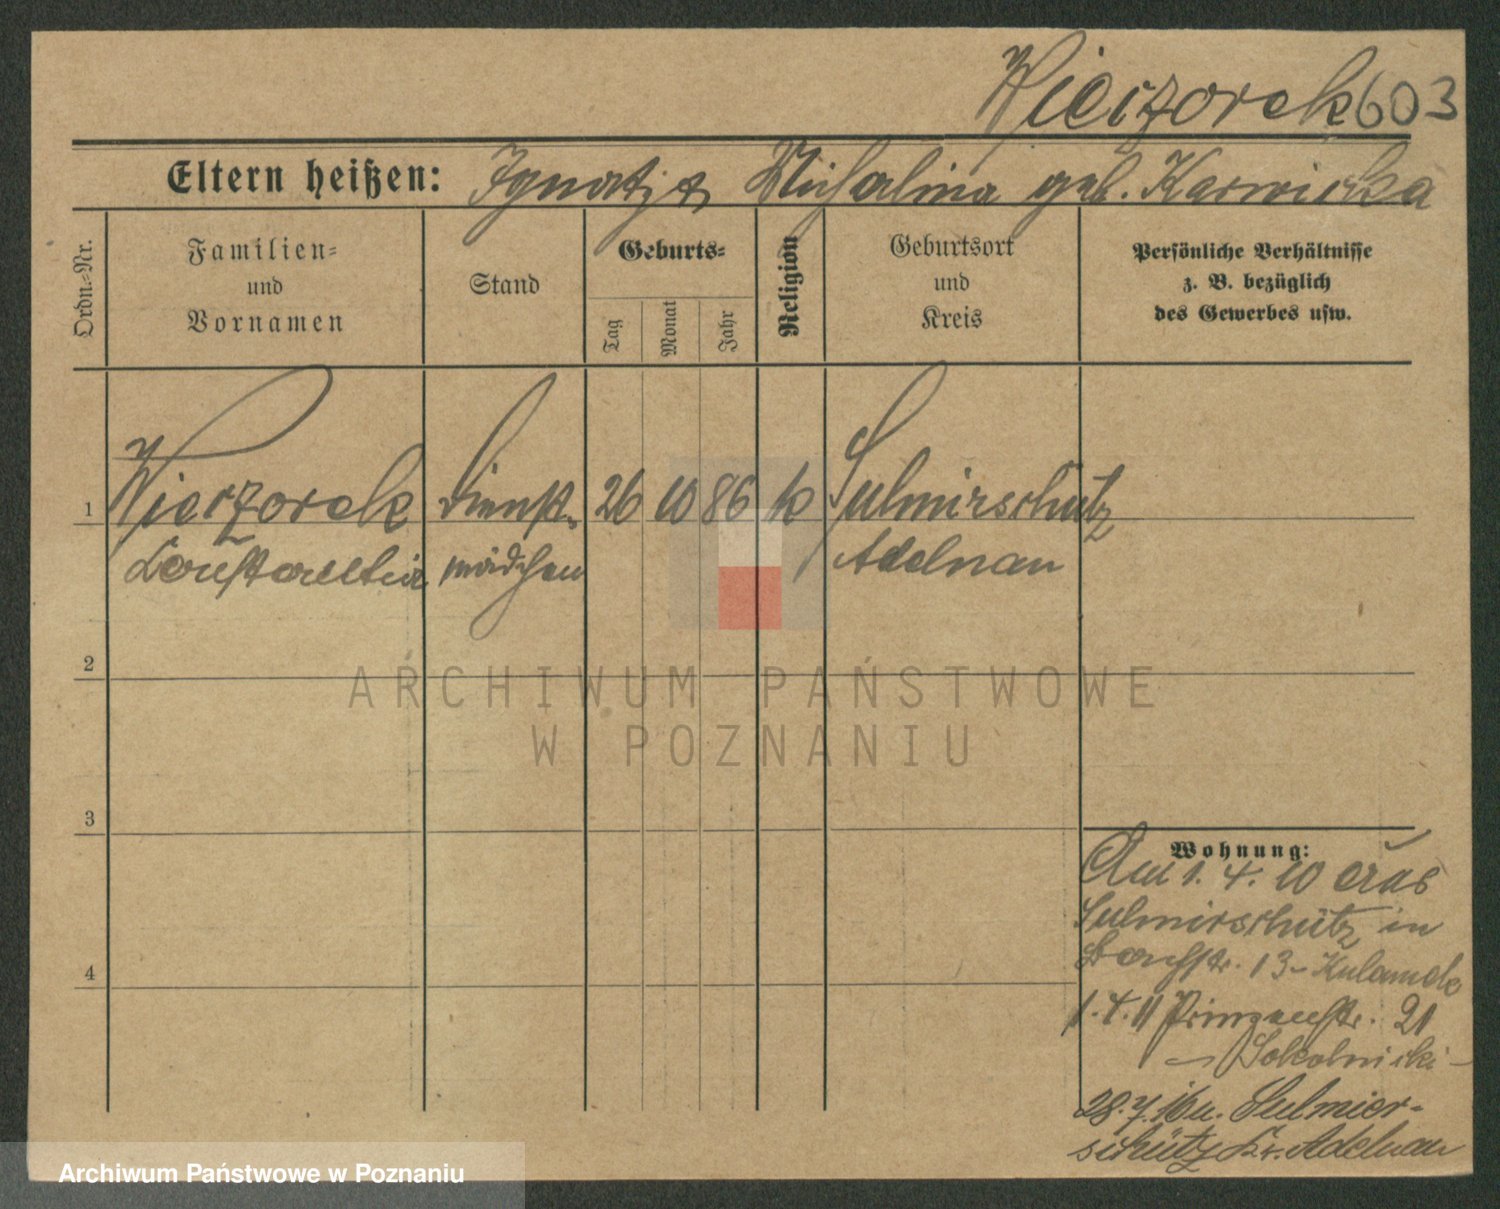 Wieczorek 603
Eltern heißen: Ignatz & Michalina geb. Karwicka
Ordn.-Nr.
Familien-
und
Vornamen
Stand
Geburts-
Tag
Monat
Jahr
Religion
Geburtsort
und
Kreis
Persönliche Verhältnisse
z. B. bezüglich
des Gewerbes usw.
1 Wieczorek Dienst- 26 10 86 k Sulmirschütz
Konstantia mädchen Adelnau
2
3
4
Wohnung:
Am 1. 4. 10 aus
Sulmirschütz in
13 -
1. 4. 11 Prinzenstr. 21
- Sokolnicki -
28. 7. 16 n. Sulmier-
schütz Kr. Adelnau
ARCHIWUM PAŃSTWOWE
W POZNANIU
Archiwum Państwowe w Poznaniu